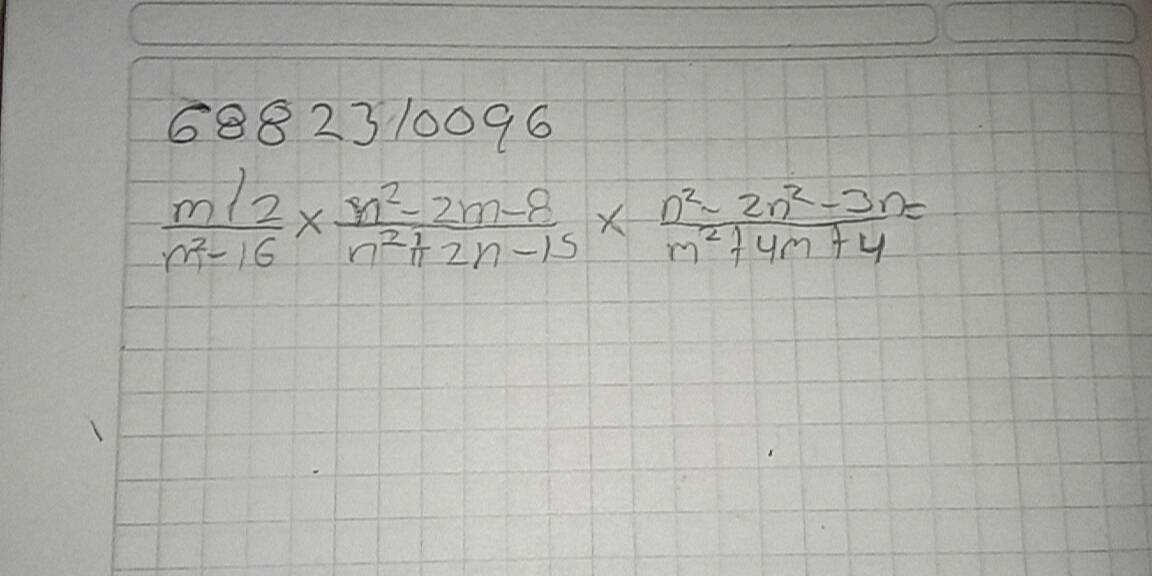 6882310096
m+2/m²-16 × m²-2m-8/n²+2n-15 × n²-2n²-3n/m²+4m+4 =